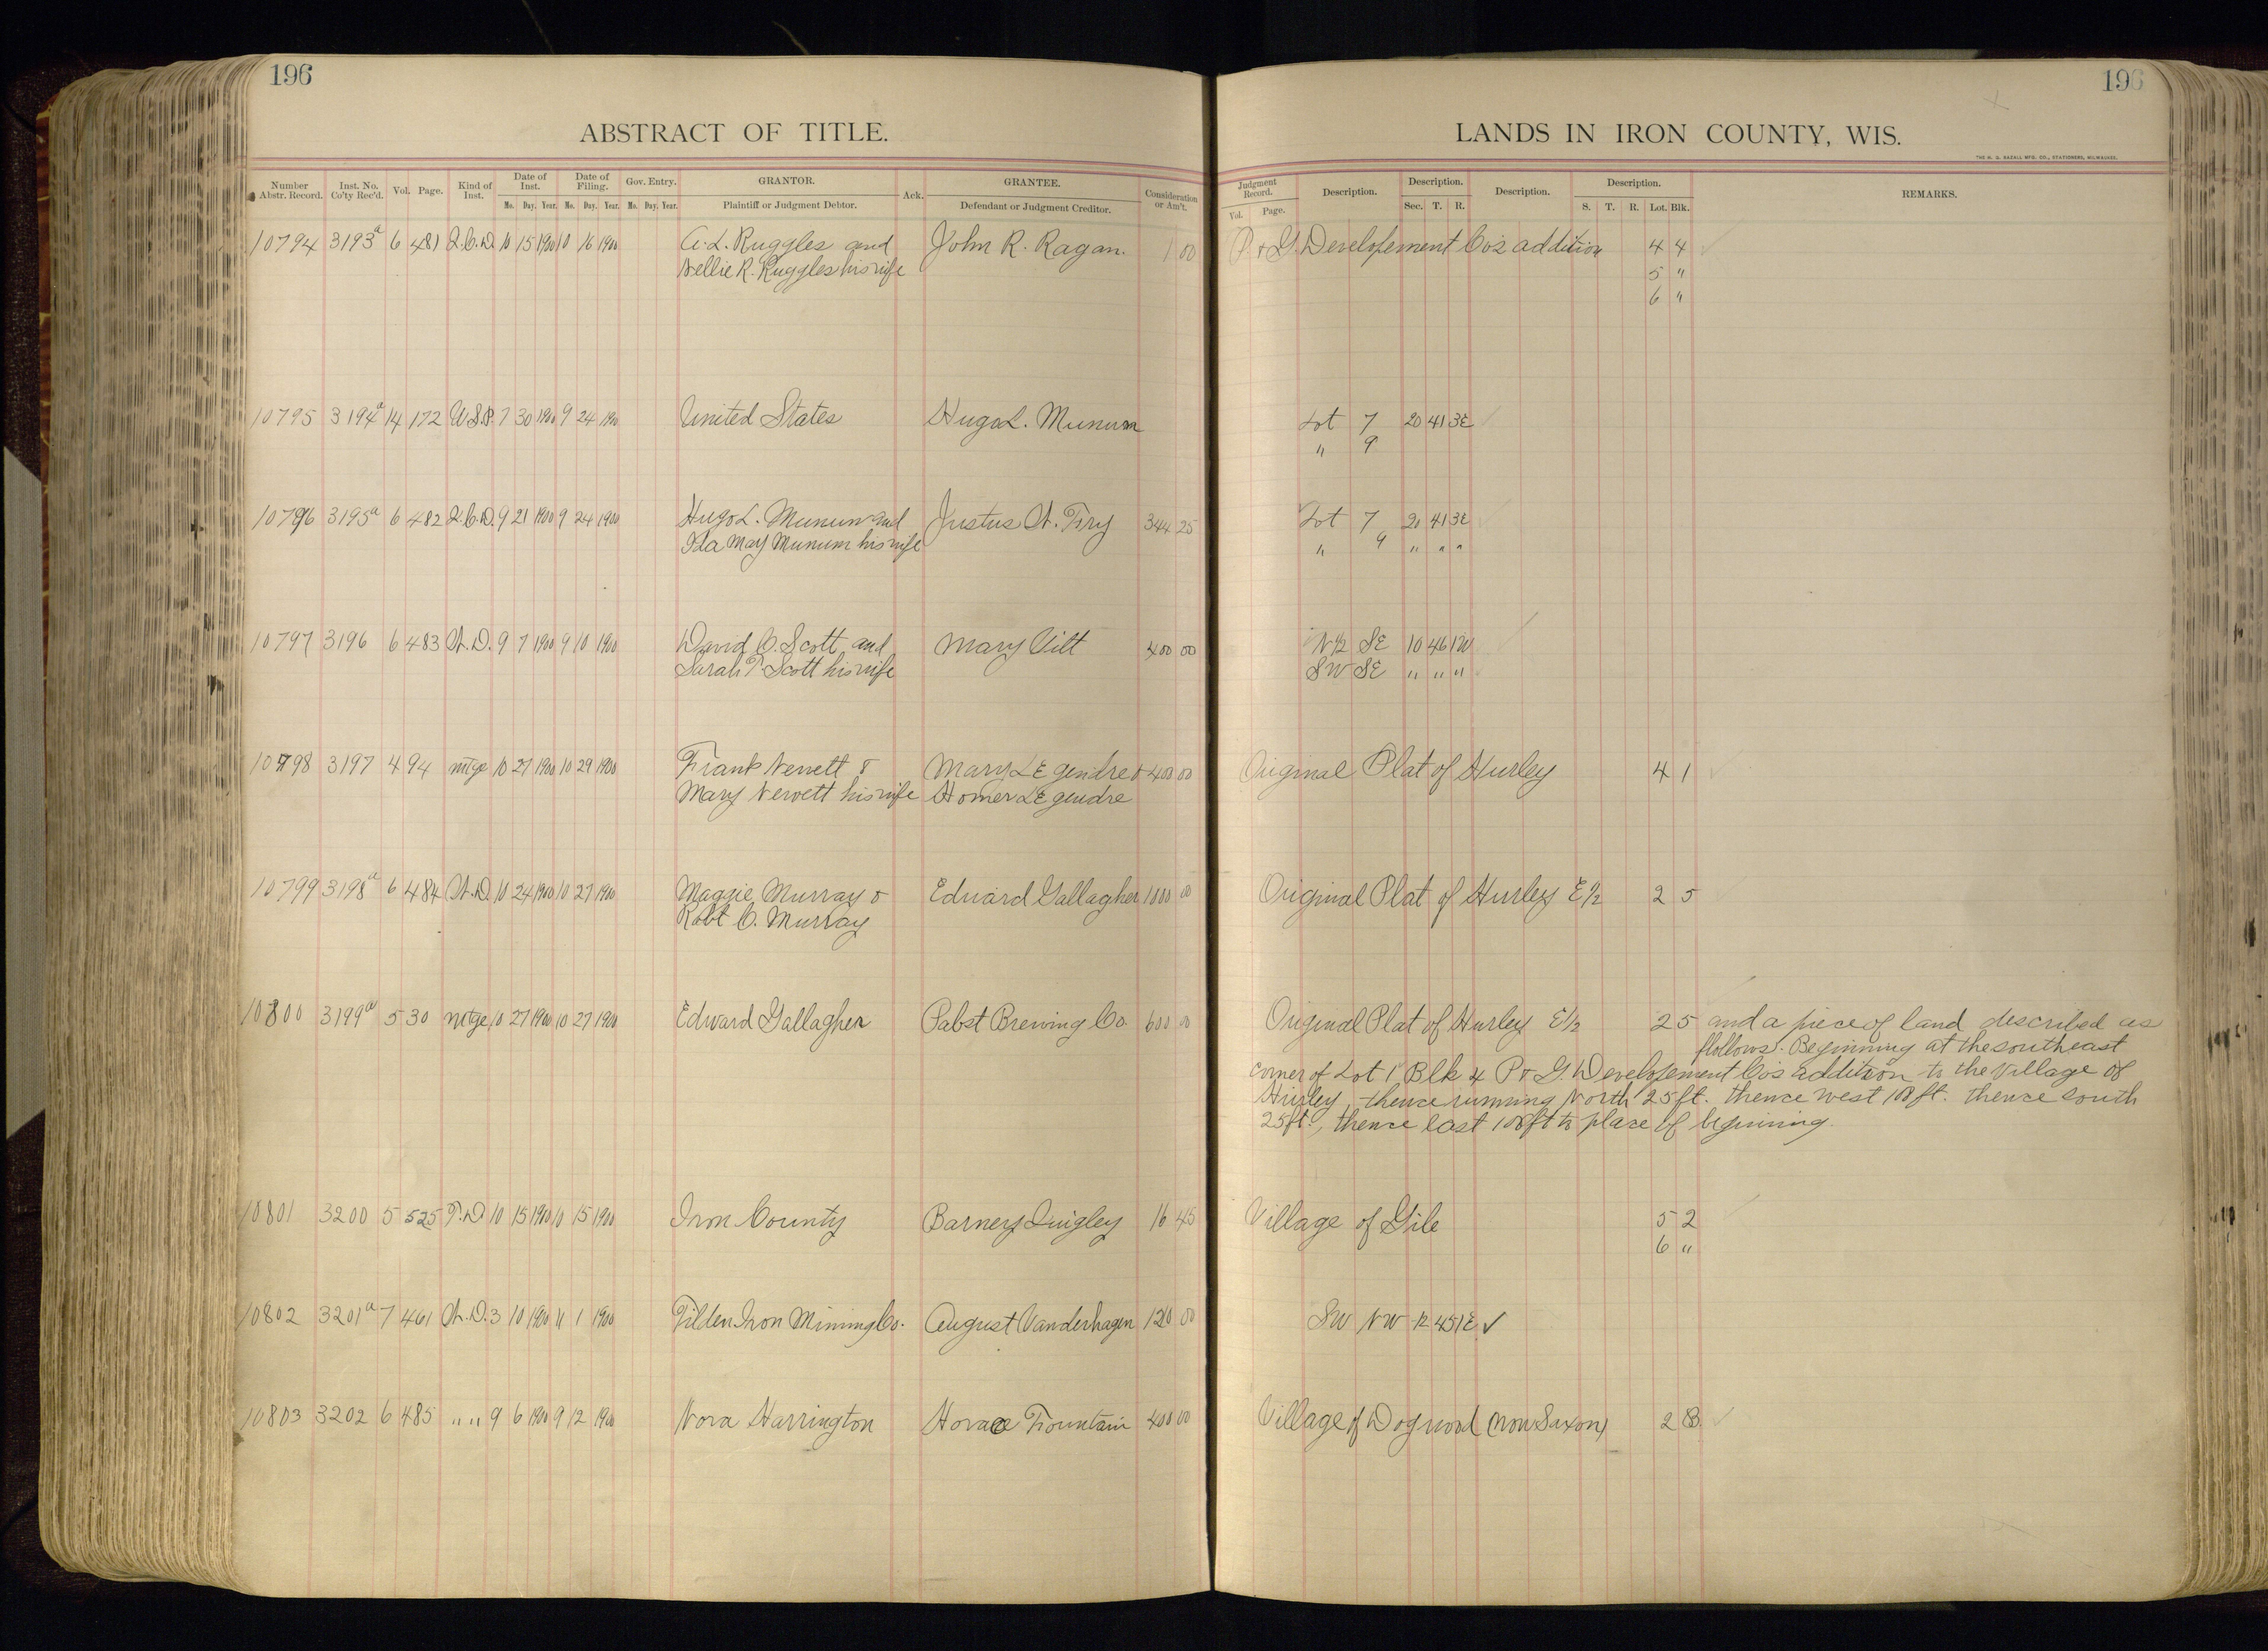 196
196
ABSTRACT OF TITLE.
LANDS IN IRON COUNTY, WIS.
THE H. G. RAZALL MFG. CO., STATIONERS, MILWAUKEE.
Number Abstr. Record. Inst. No. Co'ty Rec'd. Vol. Page. Kind of Inst. Date of Inst. Mo. Day. Year. Date of Filing. Mo. Day. Year. Gov. Entry. Mo. Day. Year. GRANTOR. Plaintiff or Judgment Debtor. Ack. GRANTEE. Defendant or Judgment Creditor. Consideration or Am't.
Judgment Record. Vol. Page. Description. Description. Sec. T. R. Description. Description. S. T. R. Lot. Blk. REMARKS.
10794 3193a 6 481 Q.C.D. 10 15 1900 10 16 1900 A. L. Ruggles and John R. Ragan. 1 00 P. & G. Developement Co's addition 4 4
Nellie R. Ruggles his wife 5 "
6 "
10795 3194a 14 172 U.S.P. 7 30 1900 9 24 1900 United States Hugo L. Munum Lot 7 20 41 3E
" 9
10796 3195a 6 482 Q.C.D. 9 21 1900 9 24 1900 Hugo L. Munum and Justus N. Fry 344 25 Lot 7 20 41 3E
Ida May Munum his wife " 9 " " "
10797 3196 6 483 W.D. 9 7 1900 9 10 1900 David C. Scott and Mary Vilt 400 00 N1/2 SE 10 46 1W
Sarah P Scott his wife SW SE " " "
10798 3197 4 94 mtge 10 27 1900 10 29 1900 Frank Nevett & Mary LEgendre & 400 00 Original Plat of Hurley 4 1
Mary Nevett his wife Homer LEgendre
10799 3198a 6 484 W.D. 10 24 1900 10 27 1900 Maggie Murray & Edward Gallagher 1000 00 Original Plat of Hurley E1/2 2 5
Robt C. Murray
10800 3199a 5 30 mtge 10 27 1900 10 27 1900 Edward Gallagher Pabst Brewing Co. 600 00 Original Plat of Hurley E1/2 2 5 and a piece of land described as
follows. Beginning at the southeast
corner of Lot 1 Blk 4 P & G. Developement Co's addition to the Village of
Hurley, thence running North 25 ft. thence west 108 ft. thence south
25 ft., thence east 108 ft to place of begining.
10801 3200 5 525 T.D. 10 15 1900 10 15 1900 Iron County Barney Quigley 16 45 Village of Gile 5 2
6 "
10802 3201a 7 461 W.D. 3 10 1900 11 1 1900 Tilden Iron Mining Co. August Vanderhagen 120 00 SW NW 12 45 1E ✓
10803 3202 6 485 " " 9 6 1900 9 12 1900 Nora Harrington Horace Fountain 400 00 Village of Dogwood (now Saxon) 2 B.